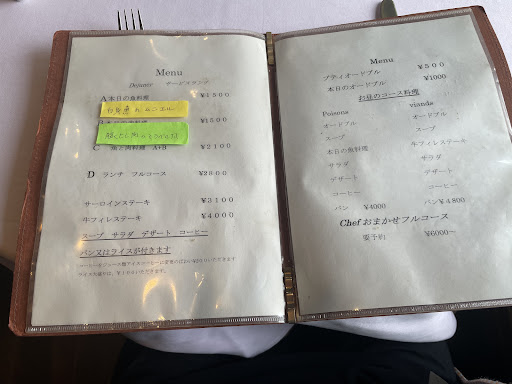 Menu
Dejuner サービスランチ
A 本日の魚料理 ¥1500
白身魚のムニエル
B ¥1500
C 魚と肉料理 A+B ¥2100
D ランチ フルコース ¥2800
サーロインステーキ ¥3100
牛フィレステーキ ¥4000
スープ サラダ デザート コーヒー
パン又はライスが付きます
Menu
プティオードブル ¥500
本日のオードブル ¥1000
お昼のコース料理
Poissons viande
オードブル オードブル
スープ スープ
本日の魚料理 牛フィレステーキ
サラダ サラダ
デザート デザート
コーヒー コーヒー
パン ¥4000 パン ¥4800
Chef おまかせフルコース
要予約 ¥6000~